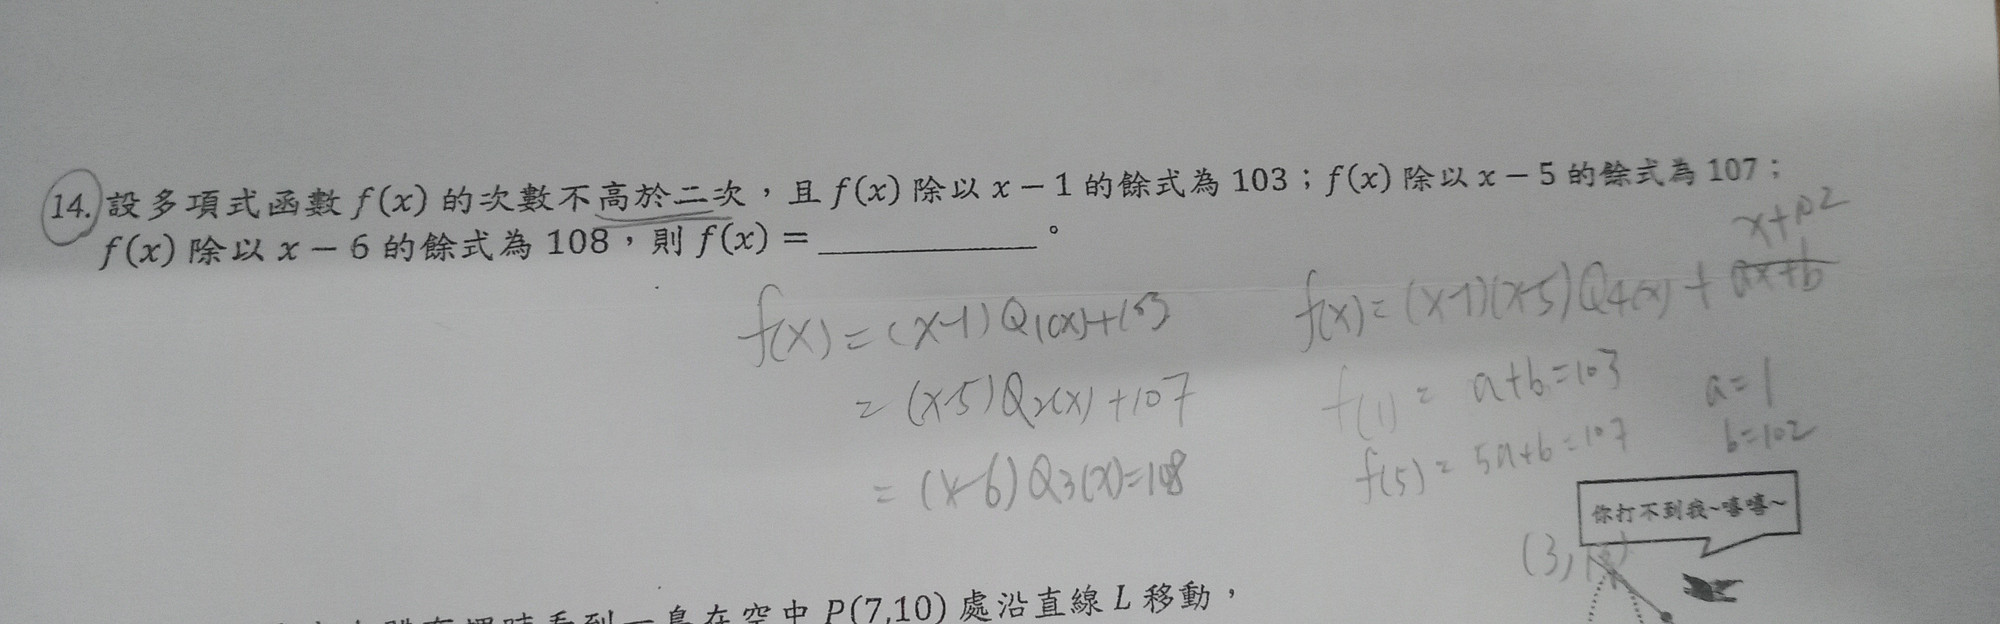 14. 設多項式函數 f(x) 的次數不高於二次，且 f(x) 除以 x − 1 的餘式為 103；f(x) 除以 x − 5 的餘式為 107；
f(x) 除以 x − 6 的餘式為 108，則 f(x) = ＿＿＿＿＿＿。
f(x) = (x-1) Q1(x)+103
= (x-5) Q2(x) +107
= (x-6) Q3(x)=108
x+102
f(x) = (x-1)(x-5) Q4(x) + ax+b
f(1) = a+b=103
a=1
f(5) = 5a+b=107
b=102
你打不到我~嘻嘻~
(3,
一鳥在空中 P(7,10) 處沿直線 L 移動，